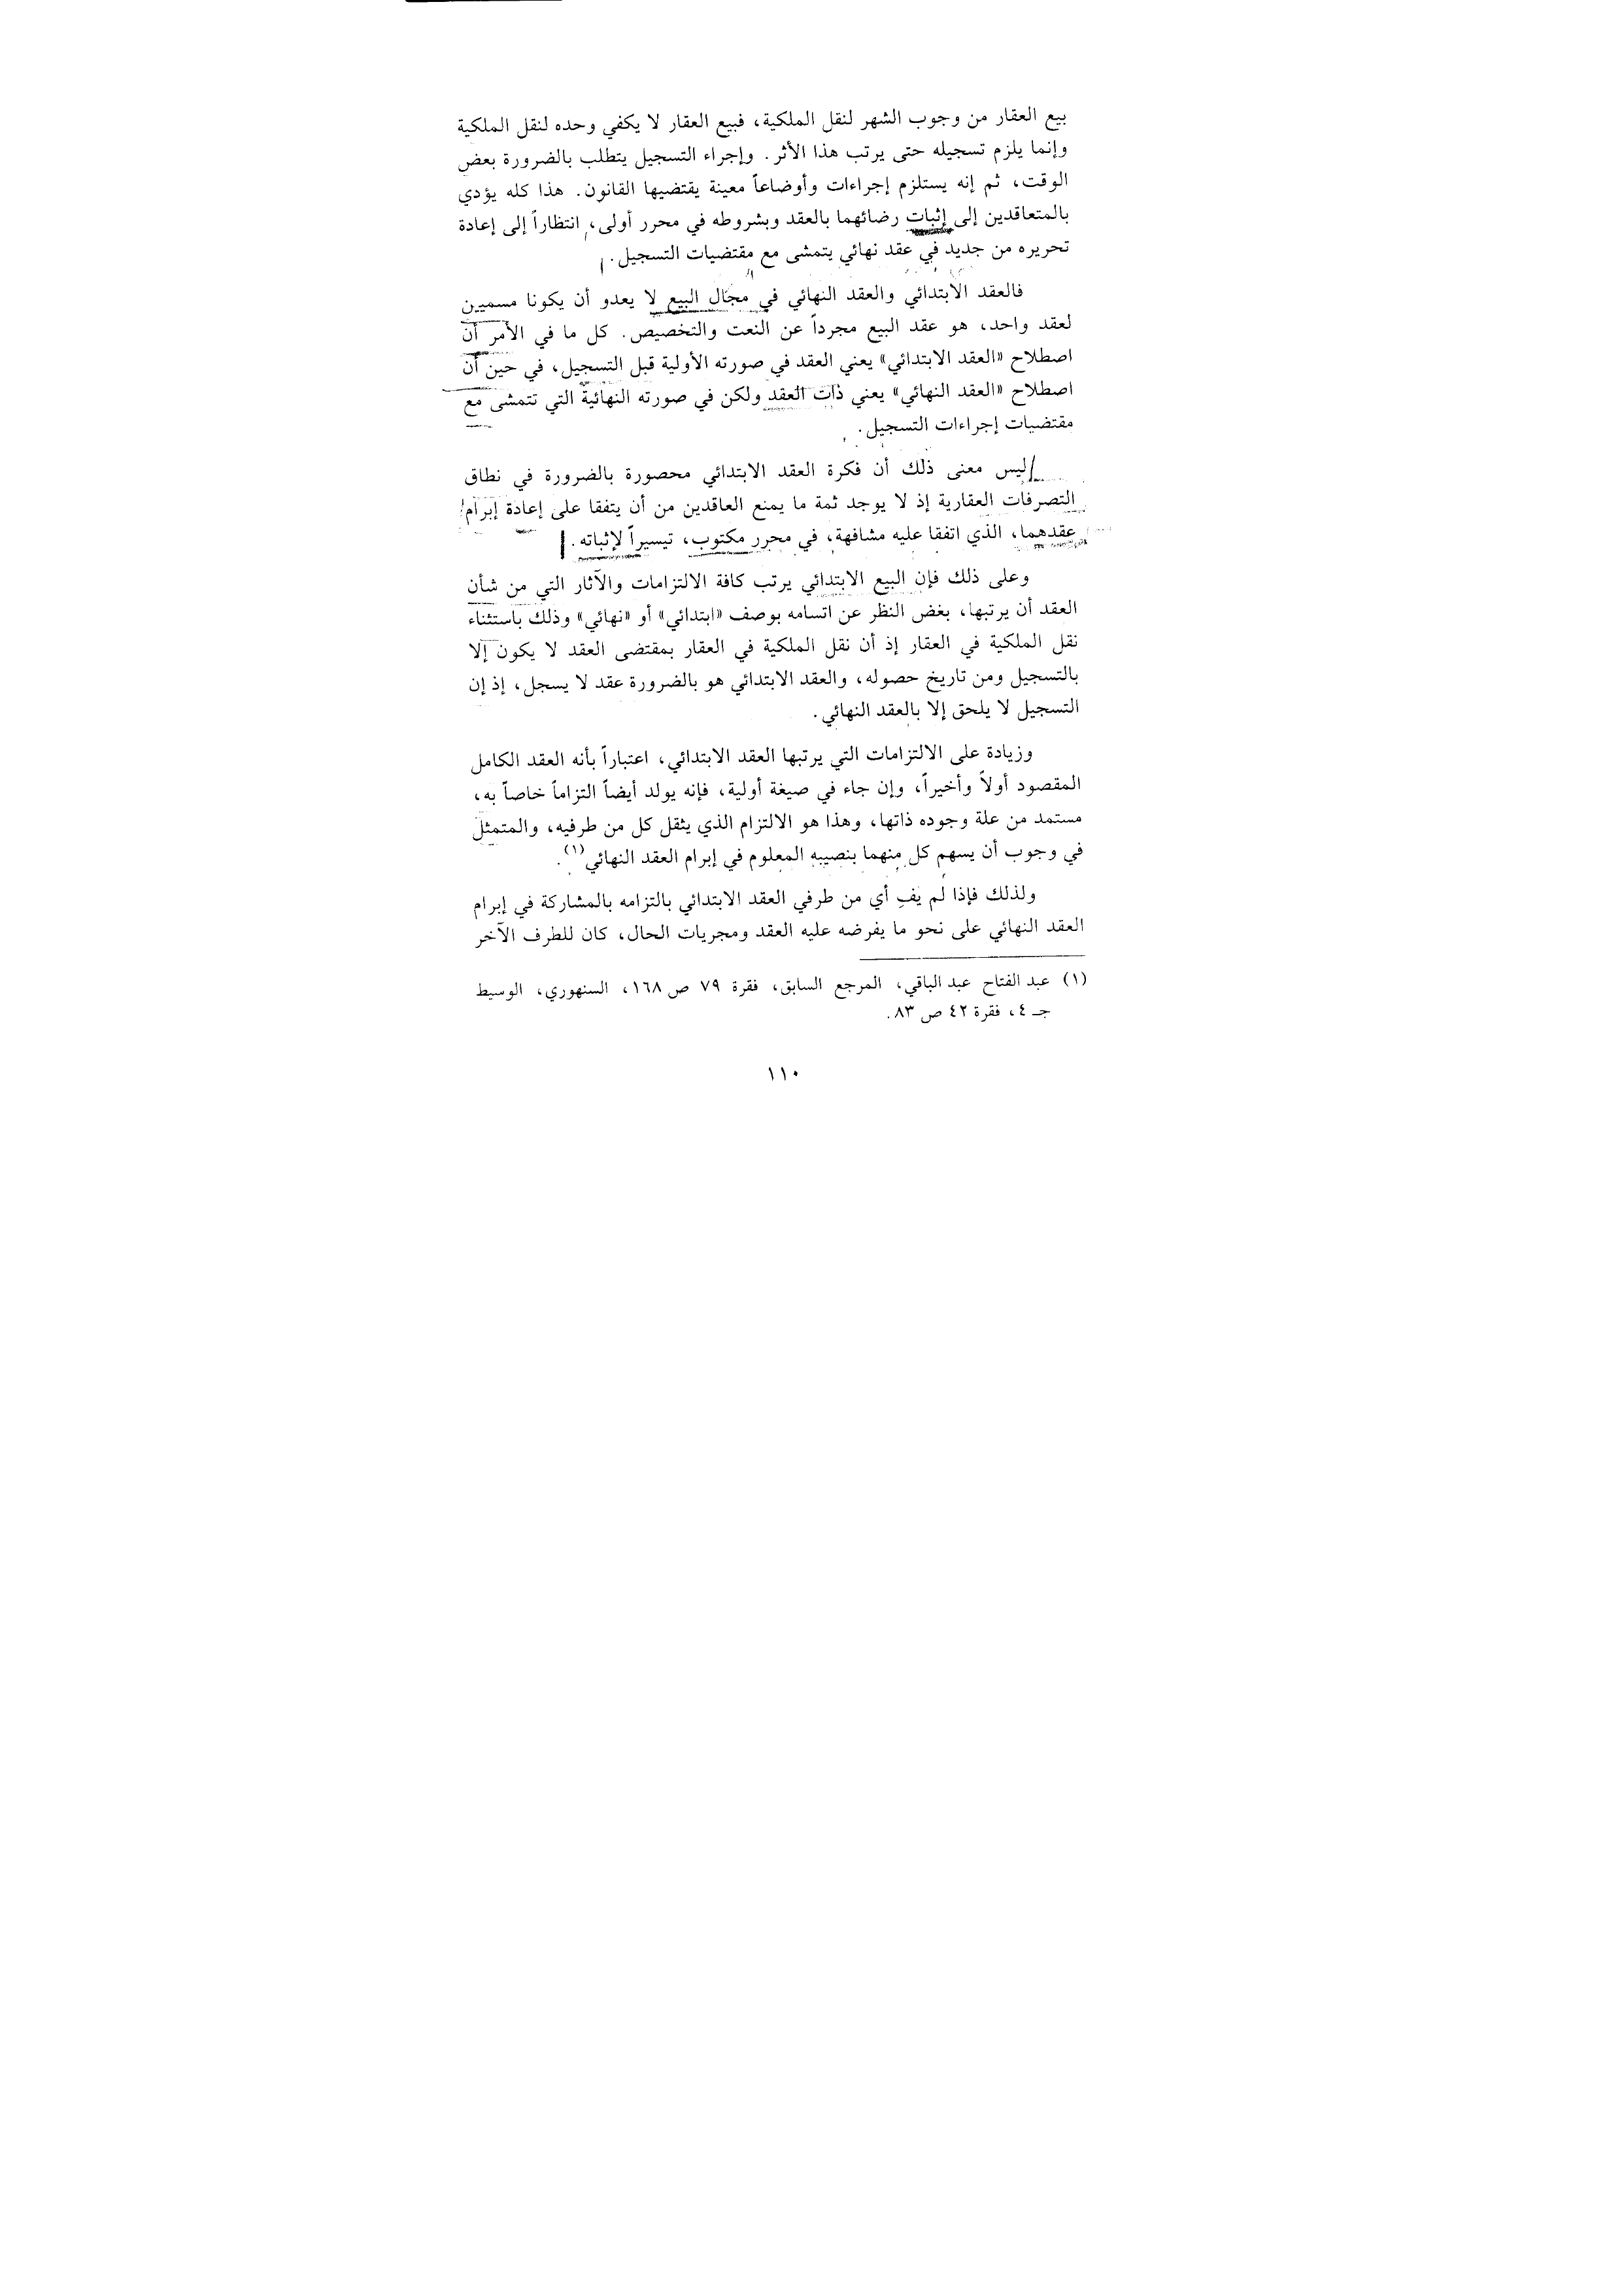 بيع العقار من وجوب الشهر لنقل الملكية، فبيع العقار لا يكفي وحده لنقل الملكية
وإنما يلزم تسجيله حتى يرتب هذا الأثر. وإجراء التسجيل يتطلب بالضرورة بعض
الوقت، ثم إنه يستلزم إجراءات وأوضاعاً معينة يقتضيها القانون. هذا كله يؤدي
بالمتعاقدين إلى إثبات رضائهما بالعقد وبشروطه في محرر أولى، انتظاراً إلى إعادة
تحريره من جديد في عقد نهائي يتمشى مع مقتضيات التسجيل.
فالعقد الابتدائي والعقد النهائي في مجال البيع لا يعدو أن يكونا مسميين
لعقد واحد، هو عقد البيع مجرداً عن النعت والتخصيص. كل ما في الأمر أن
اصطلاح «العقد الابتدائي» يعني العقد في صورته الأولية قبل التسجيل، في حين أن
اصطلاح «العقد النهائي» يعني ذات العقد ولكن في صورته النهائية التي تتمشى مع
مقتضيات إجراءات التسجيل.
ليس معنى ذلك أن فكرة العقد الابتدائي محصورة بالضرورة في نطاق
التصرفات العقارية إذ لا يوجد ثمة ما يمنع العاقدين من أن يتفقا على إعادة إبرام
عقدهما، الذي اتفقا عليه مشافهة، في محرر مكتوب، تيسيراً لإثباته.
وعلى ذلك فإن البيع الابتدائي يرتب كافة الالتزامات والآثار التي من شأن
العقد أن يرتبها، بغض النظر عن اتسامه بوصف «ابتدائي» أو «نهائي» وذلك باستثناء
نقل الملكية في العقار إذ أن نقل الملكية في العقار بمقتضى العقد لا يكون إلا
بالتسجيل ومن تاريخ حصوله، والعقد الابتدائي هو بالضرورة عقد لا يسجل، إذ إن
التسجيل لا يلحق إلا بالعقد النهائي.
وزيادة على الالتزامات التي يرتبها العقد الابتدائي، اعتباراً بأنه العقد الكامل
المقصود أولاً وأخيراً، وإن جاء في صيغة أولية، فإنه يولد أيضاً التزاماً خاصاً به،
مستمد من علة وجوده ذاتها، وهذا هو الالتزام الذي يثقل كل من طرفيه، والمتمثل
في وجوب أن يسهم كل منهما بنصيبه المعلوم في إبرام العقد النهائي(١).
ولذلك فإذا لم يفِ أي من طرفي العقد الابتدائي بالتزامه بالمشاركة في إبرام
العقد النهائي على نحو ما يفرضه عليه العقد ومجريات الحال، كان للطرف الآخر
(١) عبد الفتاح عبد الباقي، المرجع السابق، فقرة ٧٩ ص ١٦٨، السنهوري، الوسيط
جـ ٤، فقرة ٤٢ ص ٨٣.
١١٠